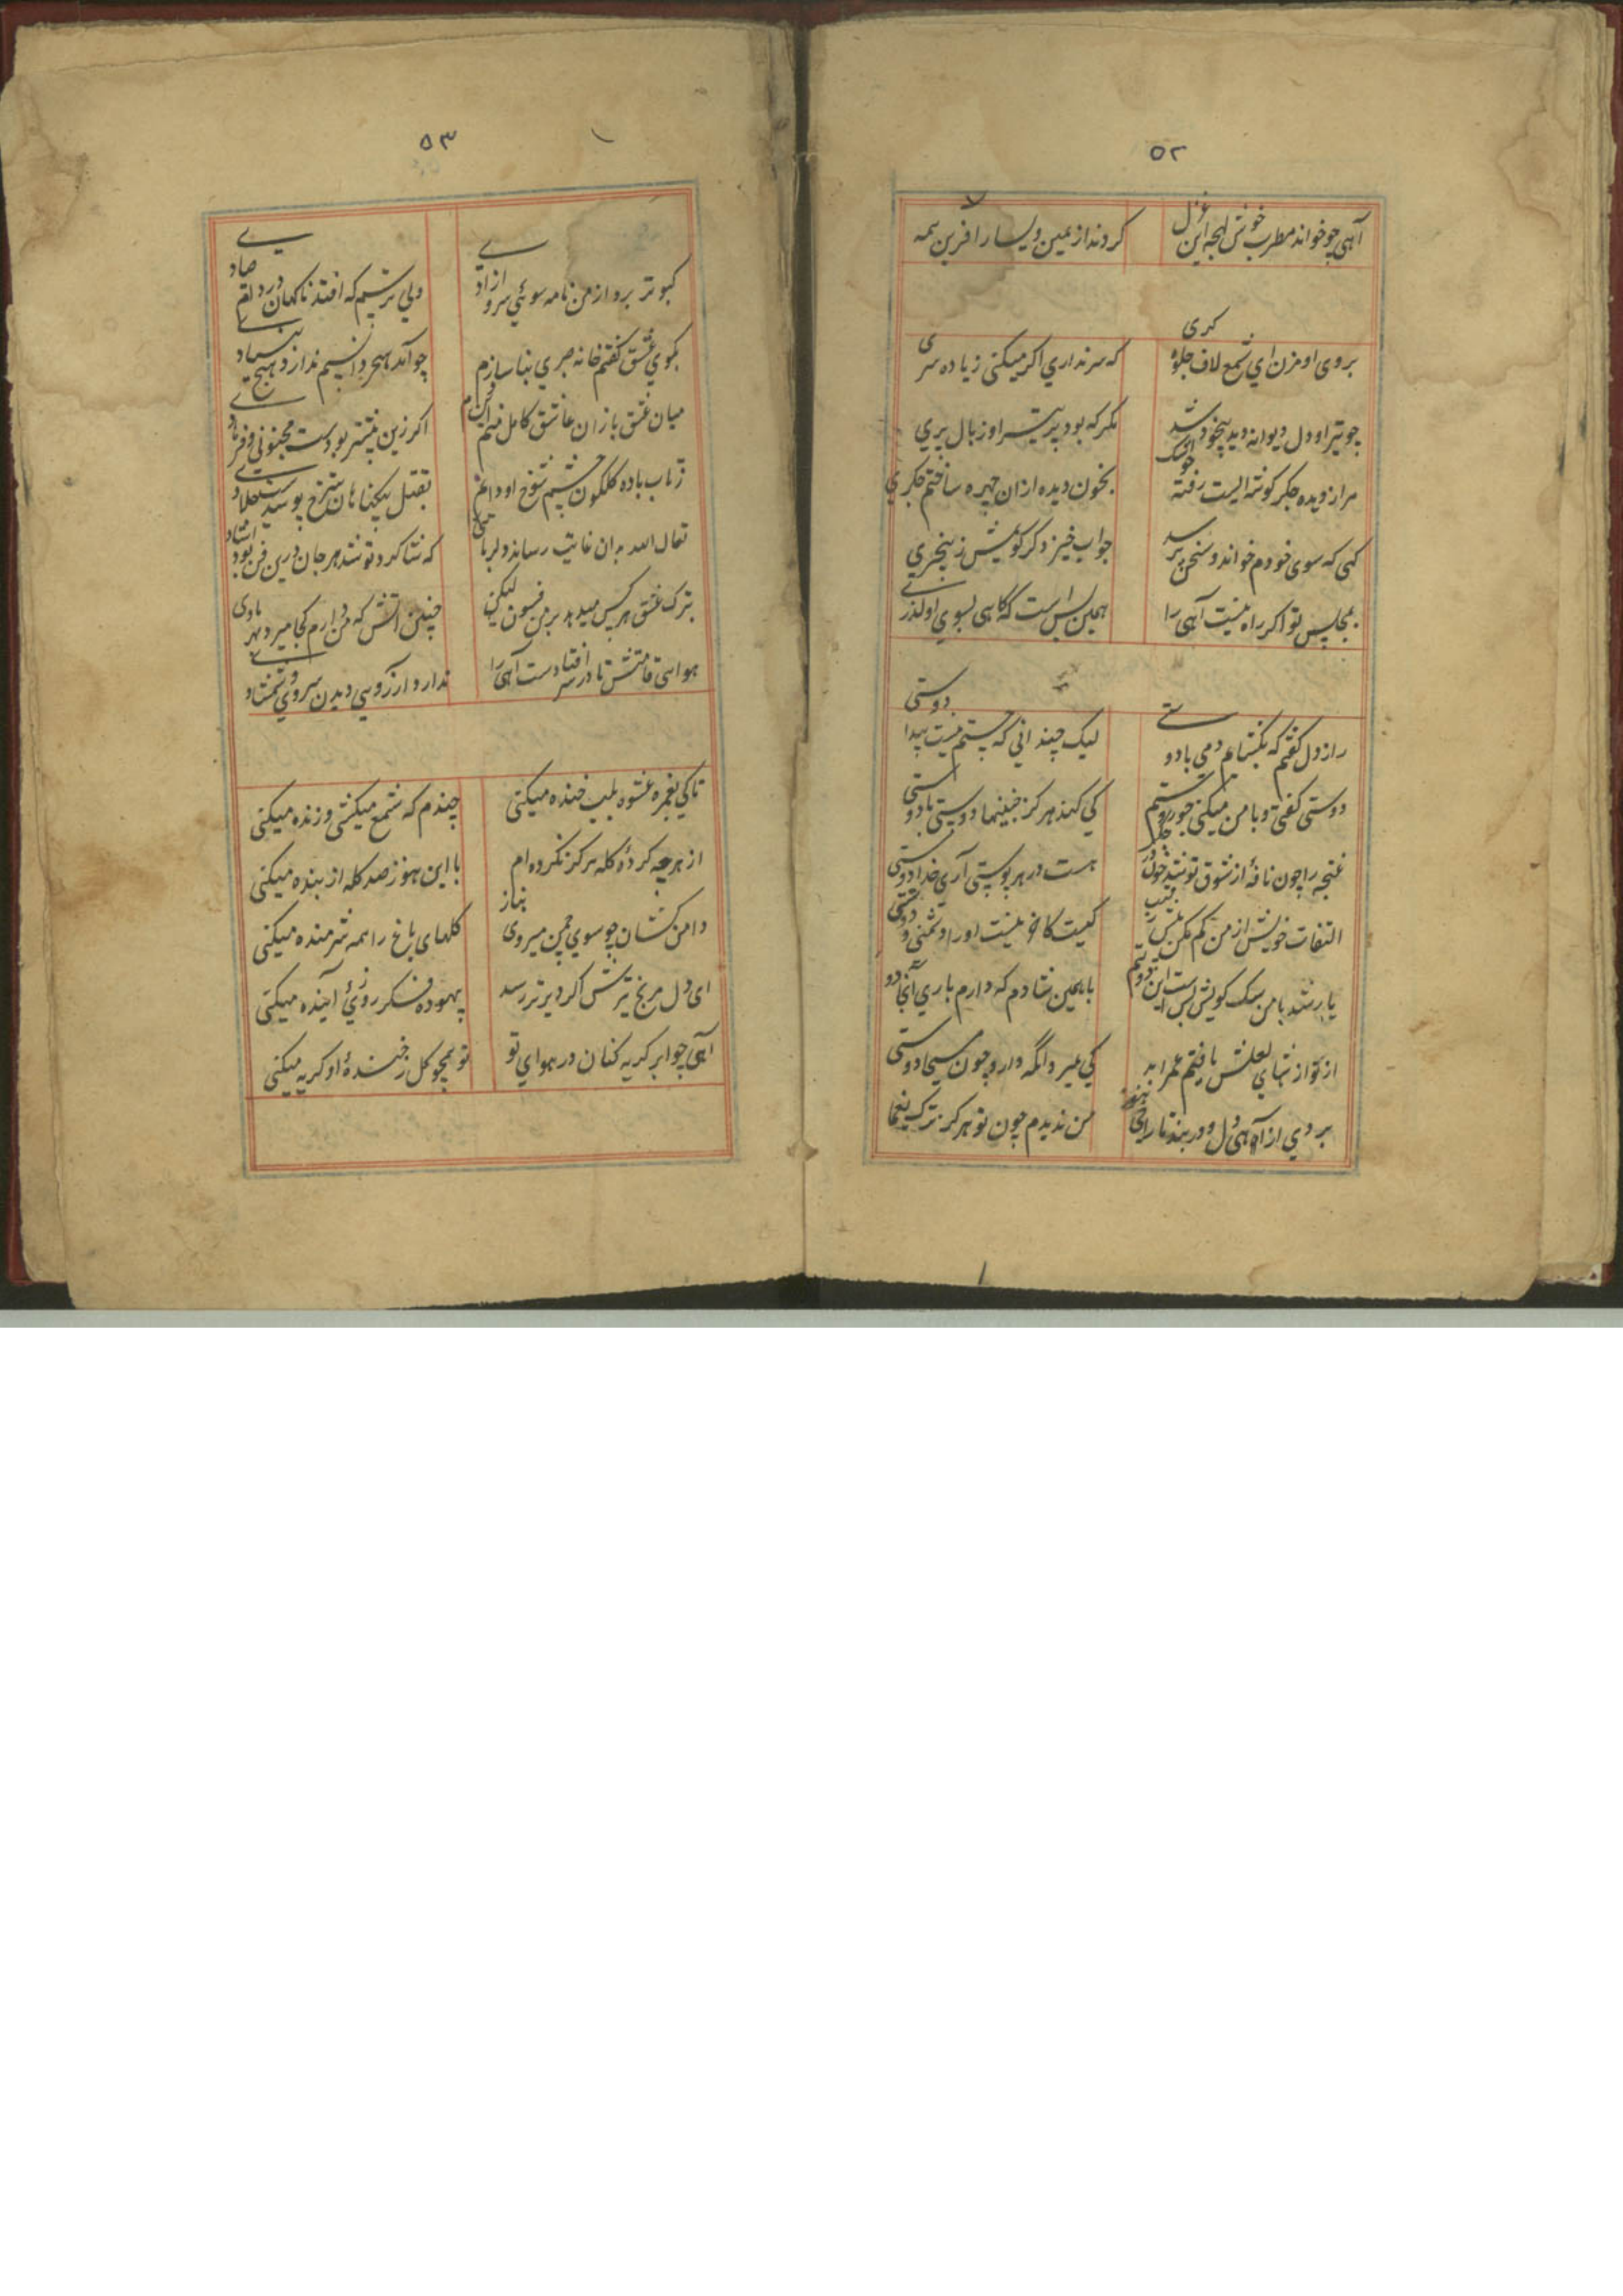 ۵۲
آهی چو خواند مطرب خوش لهجه این غزل
کردند از یمین و یسار آفرین همه
بروی او مزن ای شمع لاف جلوه کری
که سر نداری اکر میکنی زیاده سری
چو تیر او دل دیوانه دید بیخود شد
مکر که بود پر تیر او ز بال پری
مرا ز دیده جکر کوشه ایست رفته
بخون دیده ازان چهره ساختم جکری
کهی که سوی خودم خواند و سخن پرسد
جواب خیز دکر کویمش ز بیخبری
بمجلس تو اکر راه نیست آهی را
همین بس است که کاهی بسوی او کذری
راز دل کفتم که بکشایم دمی با دوستی
لیک چندانی که جستم نیست پیدا دوستی
دوستی کفتی و با من میکنی جور و ستم
کی کند هرکز چنینها دوستی با دوستی
غنچه را چون نافه از شوق تو شد خون
هست در هر پوستی آری خدا دوستی
التفات خویش از من کم مکن بیش
کیست کاخر نیست او را دشمنی و دوستی
یار شد با من سک کویش بس است این دوستیم
با همین شادم که دارم باری آنجا دوستی
از تو از لعلش یافتم عمر ابد
کی میرد آنکه دارد چون مسیحا دوستی
بردی از آهی دل و در بند تاراجی هنوز
من ندیدم چون تو هرکز ترک یغما
۵۳
کبوتر برد از من نامه سوی سرو آزادی
ولی ترسم که افتد ناکهان در دام صیادی
بکوی عشق کفتم خانه صبری بنا سازم
چو آمد هجر دانستم ندارد هیچ بنیادی
میان عشق بازان عاشق کامل منم
اکر زین پیشتر بودست مجنونی و فرهادی
ز تاب باده کلکون چشم شوخ او دایم
بقتل بیکناهان سرخ پوشیدست جلادی
تعال الله بدان غایت رساند دلربائی
که شاکرد تو شد هر جا درین فن بود استادی
بترک عشق هر کس میدهد بر من فسون لیکن
چنین آتش که من دارم کجا میرد بهر بادی
هوای قامتش تا در سر افتادست آهی را
ندارد آرزوی دیدن سروی و شمشادی
تا کی بغمزه عشوه بلب خنده میکنی
چندم که شمع میکشی و زنده میکنی
از هر چه کرده کله هرکز نکرده ام
با این هنوز صد کله از بنده میکنی
دامن کشان چو سوی چمن میروی بناز
کلهای باغ را همه شرمنده میکنی
ای دل مرنج تیرش اکر دیرتر رسد
بیهوده فکر روزی آینده میکنی
آهی چو ابر کریه کنان در هوای تو
تو همچو کل ز خنده او کریه میکنی